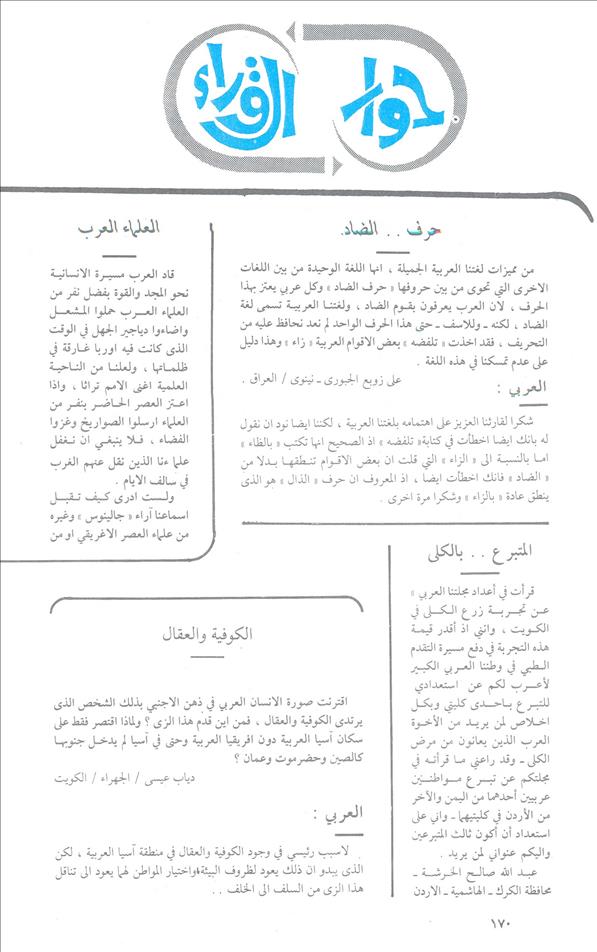 حوار القراء
حرف . . الضاد .
من مميزات لغتنا العربية الجميلة ، انها اللغة الوحيدة من بين اللغات
الاخرى التي تحوى من بين حروفها « حرف الضاد » وكل عربي يعتز بهذا
الحرف ، لان العرب يعرفون بقوم الضاد ، ولغتنا العربية تسمى لغة
الضاد ، لكنه ــ وللاسف ــ حتى هذا الحرف الواحد لم نعد نحافظ عليه من
التحريف ، فقد اخذت « تلفضه » بعض الاقوام العربية « زاء » وهذا دليل
على عدم تمسكنا في هذه اللغة .
على زويع الجبورى ــ نينوى / العراق .
العربي :
شكرا لقارئنا العزيز على اهتمامه بلغتنا العربية ، لكننا ايضا نود ان نقول
له بانك ايضا اخطأت في كتابة « تلفضه » اذ الصحيح انها تكتب « بالظاء »
اما بالنسبة الى « الزاء » التي قلت ان بعض الاقوام تنطقها بدلا من
« الضاد » فانك اخطأت ايضا ، اذ المعروف ان حرف « الذال » هو الذى
ينطق عادة « بالزاء » وشكرا مرة اخرى .
العلماء العرب
قاد العرب مسيرة الانسانية
نحو المجد والقوة بفضل نفر من
العلماء العرب حملوا المشعل
واضاءوا دياجير الجهل في الوقت
الذى كانت فيه اوربا غارقة في
ظلماتها ، ولعلنا من الناحية
العلمية اغنى الامم تراثا ، واذا
اعتز العصر الحاضر بنفر من
العلماء ارسلوا الصواريخ وغزوا
الفضاء ، فلا ينبغي ان نغفل
علماءنا الذين نقل عنهم الغرب
في سالف الايام .
ولست ادرى كيف تقبل
اسماعنا آراء « جالينوس » وغيره
من علماء العصر الاغريقي او من
المتبرع . . بالكلى
قرأت في أعداد مجلتنا العربي »
عن تجربة زرع الكلى في
الكويت ، وانني اذ أقدر قيمة
هذه التجربة في دفع مسيرة التقدم
الطبي في وطننا العربي الكبير
لأعرب لكم عن استعدادي
للتبرع باحدى كليتي وبكل
اخلاص لمن يريد من الأخوة
العرب الذين يعانون من مرض
الكلى ــ وقد راعني ما قرأته في
مجلتكم عن تبرع مواطنين
عربيين أحدهما من اليمن والآخر
من الأردن في كليتيهما ــ واني على
استعداد أن أكون ثالث المتبرعين
واليكم عنواني لمن يريد .
عبد الله صالح الخرشة ــ
محافظة الكرك ــ الهاشمية ــ الاردن
الكوفية والعقال
اقترنت صورة الانسان العربي في ذهن الاجنبي بذلك الشخص الذى
يرتدى الكوفية والعقال ، فمن اين قدم هذا الزى ؟ ولماذا اقتصر فقط على
سكان آسيا العربية دون افريقيا العربية وحتى في آسيا لم يدخل جنوبها
كالصين وحضرموت وعمان ؟
دياب عيسى / الجهراء / الكويت
العربي :
لاسبب رئيسي في وجود الكوفية والعقال في منطقة آسيا العربية ، لكن
الذى يبدو ان ذلك يعود لظروف البيئة ، واختيار المواطن لهما يعود الى تناقل
هذا الزى من السلف الى الخلف . .
١٧٠